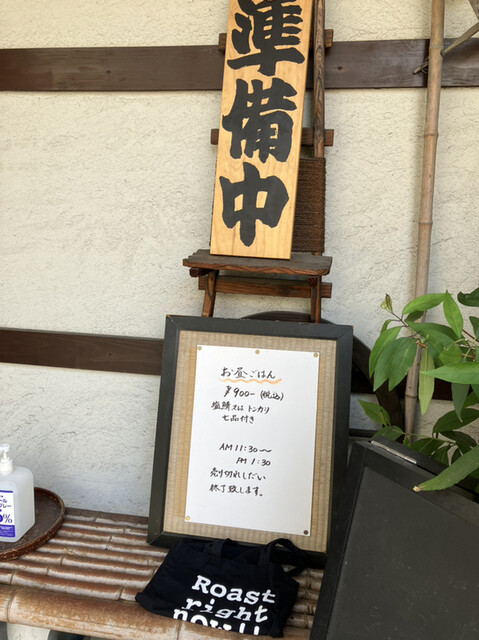 準備中
お昼ごはん
¥900-(税込)
塩鯖又は トンカツ
七品付き
AM 11:30〜
PM 1:30
売り切れしだい
終了致します。
Roast
right
now!!
%